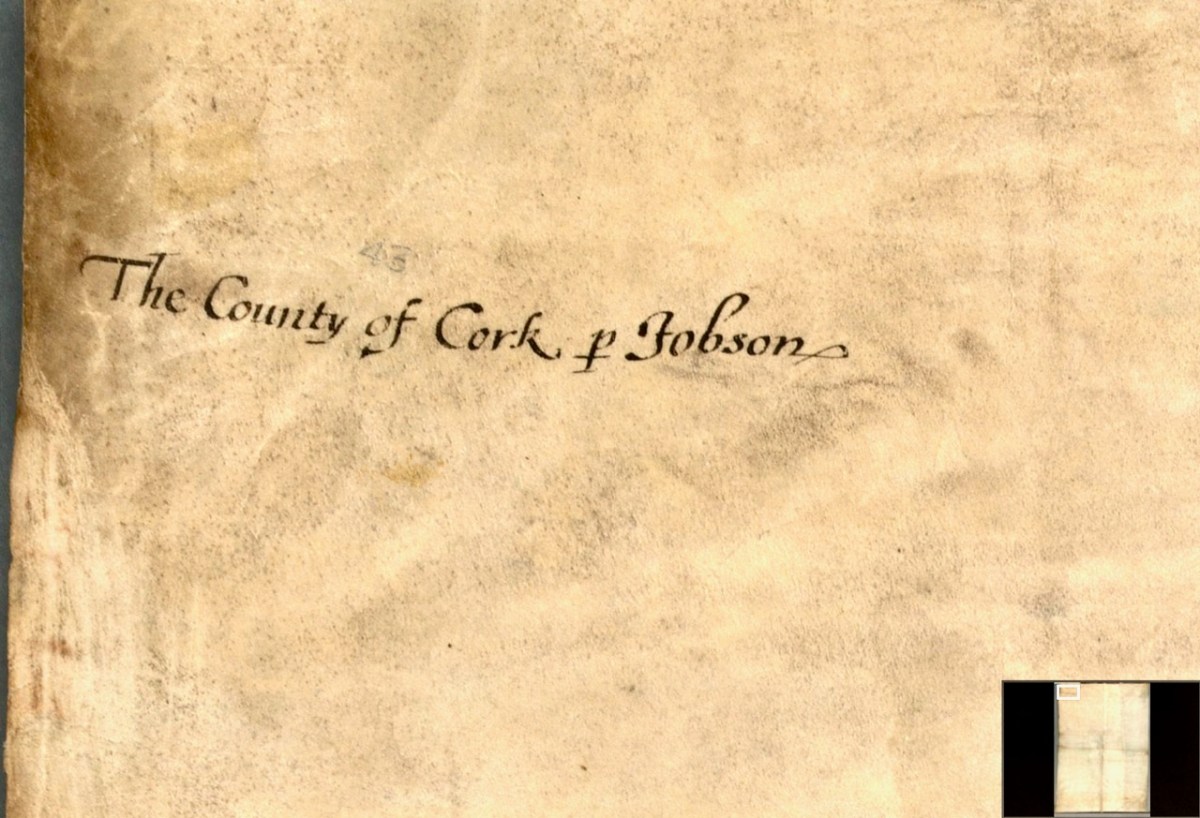 43
The County of Cork p Jobson